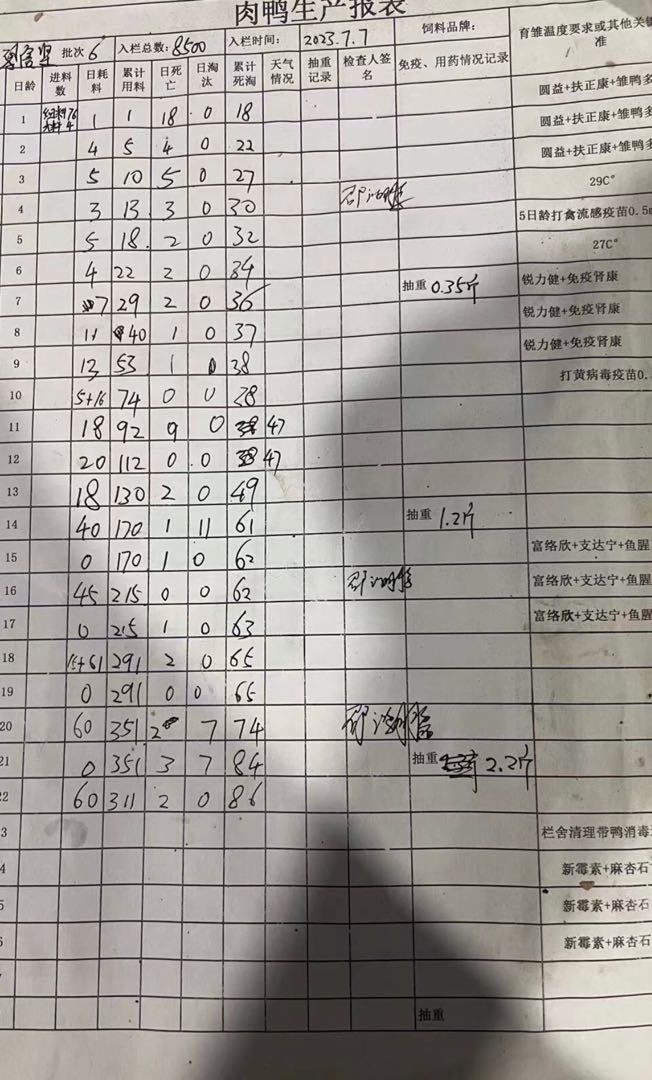 肉鸭生产报表
批次 6 入栏总数: 8500 入栏时间: 2023.7.7 饲料品牌: 育雏温度要求或其他关键
准
日龄 进料数 日耗料 累计用料 日死亡 日淘汰 累计死淘 天气情况 抽重记录 检查人签名 免疫、用药情况记录
1 1 1 18 0 18 圆益+扶正康+雏鸭多
圆益+扶正康+雏鸭多
2 4 5 4 0 22 圆益+扶正康+雏鸭多
3 5 10 5 0 27 29C°
4 3 13 3 0 30 5日龄打禽流感疫苗0.5m
5 5 18 2 0 32 27C°
6 4 22 2 0 34 抽重 0.35斤 锐力健+免疫肾康
7 7 29 2 0 36 锐力健+免疫肾康
8 11 40 1 0 37 锐力健+免疫肾康
9 13 53 1 0 38 打黄病毒疫苗0.
10 5+16 74 0 0 38
11 18 92 9 0 47
12 20 112 0 0 47
13 18 130 2 0 49 抽重 1.2斤
14 40 170 1 11 61 富络欣+支达宁+鱼腥
15 0 170 1 0 62 富络欣+支达宁+鱼腥
16 45 215 0 0 62 富络欣+支达宁+鱼腥
17 0 215 1 0 63
18 15+61 291 2 0 65
19 0 291 0 0 65
20 60 351 2 7 74
21 0 351 3 7 84 抽重 2.2斤
22 60 311 2 0 86
3 栏舍清理带鸭消毒
4 新霉素+麻杏石
5 新霉素+麻杏石
6 新霉素+麻杏石
抽重